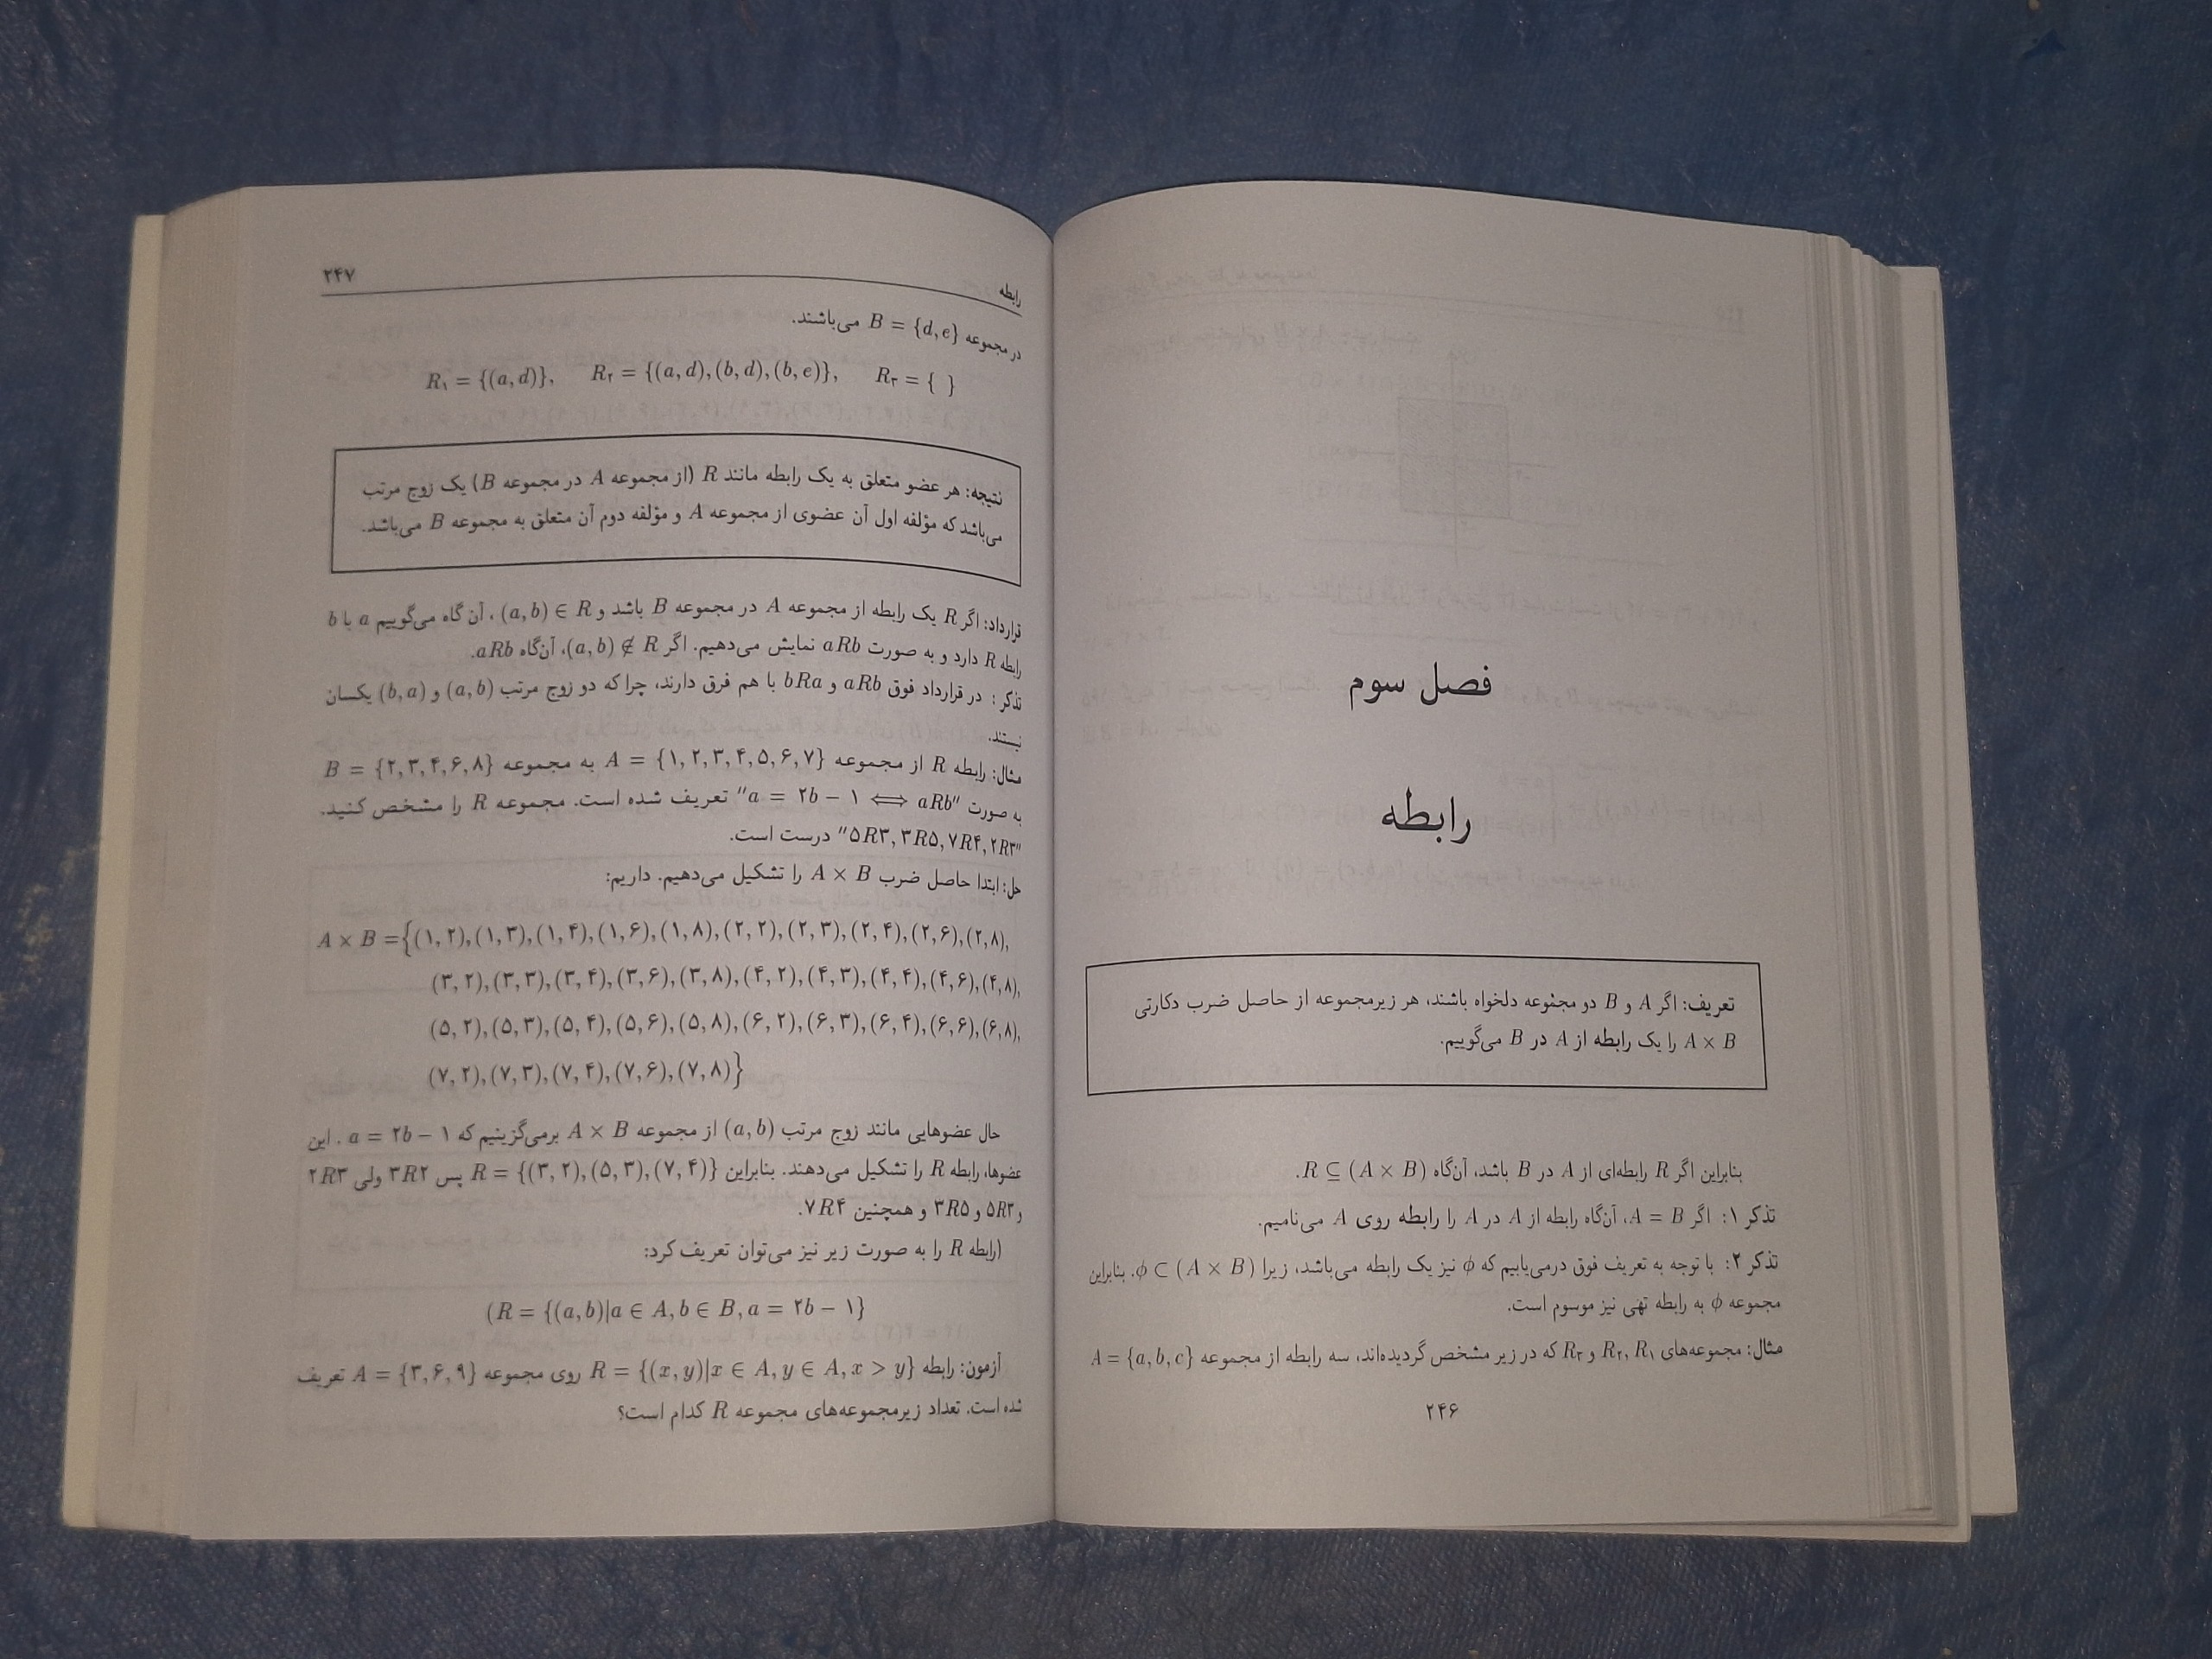 فصل سوم
رابطه
تعریف: اگر A و B دو مجموعه دلخواه باشند، هر زیرمجموعه از حاصل ضرب دکارتی
A × B را یک رابطه از A در B می‌گوییم.
بنابراین اگر R رابطه‌ای از A در B باشد، آن‌گاه R ⊆ (A × B).
تذکر ۱: اگر A = B، آن‌گاه رابطه از A در A را رابطه روی A می‌نامیم.
تذکر ۲: با توجه به تعریف فوق درمی‌یابیم که ϕ نیز یک رابطه می‌باشد، زیرا ϕ ⊂ (A × B). بنابراین
مجموعه ϕ به رابطه تهی نیز موسوم است.
مثال: مجموعه‌های R۱ ,R۲ و R۳ که در زیر مشخص گردیده‌اند، سه رابطه از مجموعه A = {a, b, c}
۲۴۶
رابطه ۲۴۷
در مجموعه B = {d, e} می‌باشند.
R۱ = {(a, d)}, R۲ = {(a, d), (b, d), (b, e)}, R۳ = { }
نتیجه: هر عضو متعلق به یک رابطه مانند R (از مجموعه A در مجموعه B) یک زوج مرتب
می‌باشد که مؤلفه اول آن عضوی از مجموعه A و مؤلفه دوم آن متعلق به مجموعه B می‌باشد.
قرارداد: اگر R یک رابطه از مجموعه A در مجموعه B باشد و (a, b) ∈ R ، آن گاه می‌گوییم a با b
رابطه R دارد و به صورت aRb نمایش می‌دهیم. اگر (a, b) ∉ R، آن‌گاه aRb.
تذکر : در قرارداد فوق aRb و bRa با هم فرق دارند، چرا که دو زوج مرتب (a, b) و (b, a) یکسان
نیستند.
مثال: رابطه R از مجموعه A = {۱, ۲, ۳, ۴, ۵, ۶, ۷} به مجموعه B = {۲, ۳, ۴, ۶, ۸}
به صورت "aRb ⟺ a = ۲b − ۱" تعریف شده است. مجموعه R را مشخص کنید.
"۵R۳, ۳R۵, ۷R۴, ۲R۳" درست است.
حل: ابتدا حاصل ضرب A × B را تشکیل می‌دهیم. داریم:
A × B ={(۱, ۲), (۱, ۳), (۱, ۴), (۱, ۶), (۱, ۸), (۲, ۲), (۲, ۳), (۲, ۴), (۲, ۶), (۲, ۸),
(۳, ۲), (۳, ۳), (۳, ۴), (۳, ۶), (۳, ۸), (۴, ۲), (۴, ۳), (۴, ۴), (۴, ۶), (۴, ۸),
(۵, ۲), (۵, ۳), (۵, ۴), (۵, ۶), (۵, ۸), (۶, ۲), (۶, ۳), (۶, ۴), (۶, ۶), (۶, ۸),
(۷, ۲), (۷, ۳), (۷, ۴), (۷, ۶), (۷, ۸)}
حال عضوهایی مانند زوج مرتب (a, b) از مجموعه A × B برمی‌گزینیم که a = ۲b − ۱ . این
عضوها، رابطه R را تشکیل می‌دهند. بنابراین R = {(۳, ۲), (۵, ۳), (۷, ۴)} پس ۳R۲ ولی ۲R۳
و ۵R۳ و ۳R۵ و همچنین ۷R۴.
(رابطه R را به صورت زیر نیز می‌توان تعریف کرد:
(R = {(a, b)|a ∈ A, b ∈ B, a = ۲b − ۱}
آزمون: رابطه R = {(x, y)|x ∈ A, y ∈ A, x > y} روی مجموعه A = {۳, ۶, ۹} تعریف
شده است. تعداد زیرمجموعه‌های مجموعه R کدام است؟